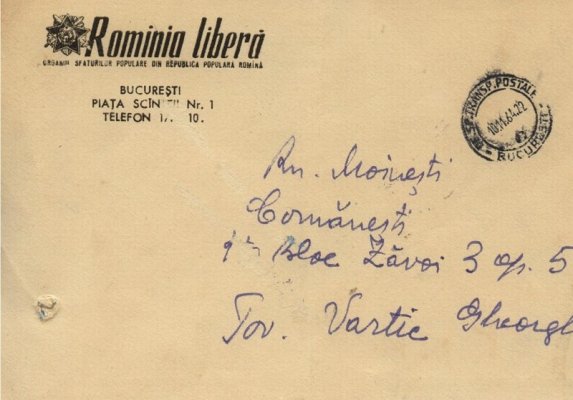 Romînia liberă
ORGANUL SFATURILOR POPULARE DIN REPUBLICA POPULARĂ ROMÎNĂ
BUCUREȘTI
PIAȚA SCÎNTEII Nr. 1
TELEFON 10.
TRANSP. POSTALE
10.11.64.22
BUCUREȘTI
Rn. Moinești
Comănești
Bloc Zăvoi 3 ap. 5
Tov. Vartic Gheorgh